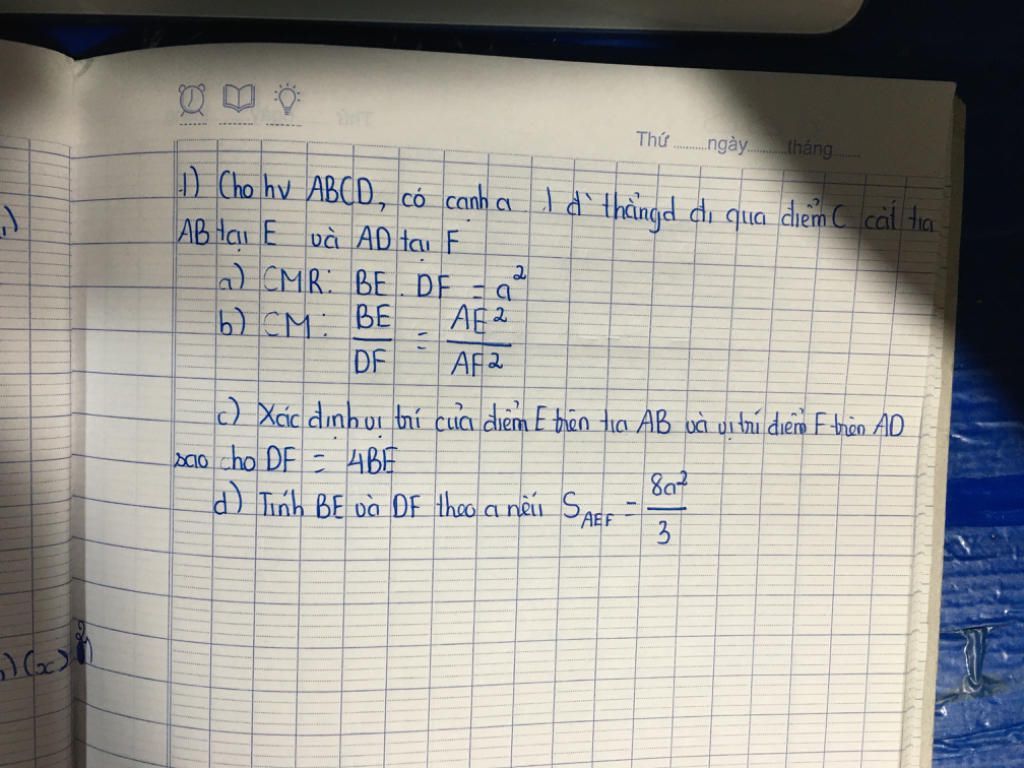 Thứ ..........ngày..........tháng.......
1) Cho hv ABCD, có cạnh a. 1 đ̀ thẳng d đi qua điểm C cắt tia
AB tại E và AD tại F
a) CMR: BE . DF = a²
b) CM: BE/DF = AE²/AF²
c) Xác định vị trí của điểm E trên tia AB và vị trí điểm F trên AD
sao cho DF = 4BE
d) Tính BE và DF theo a nếu S_AEF = 8a²/3
) (x)